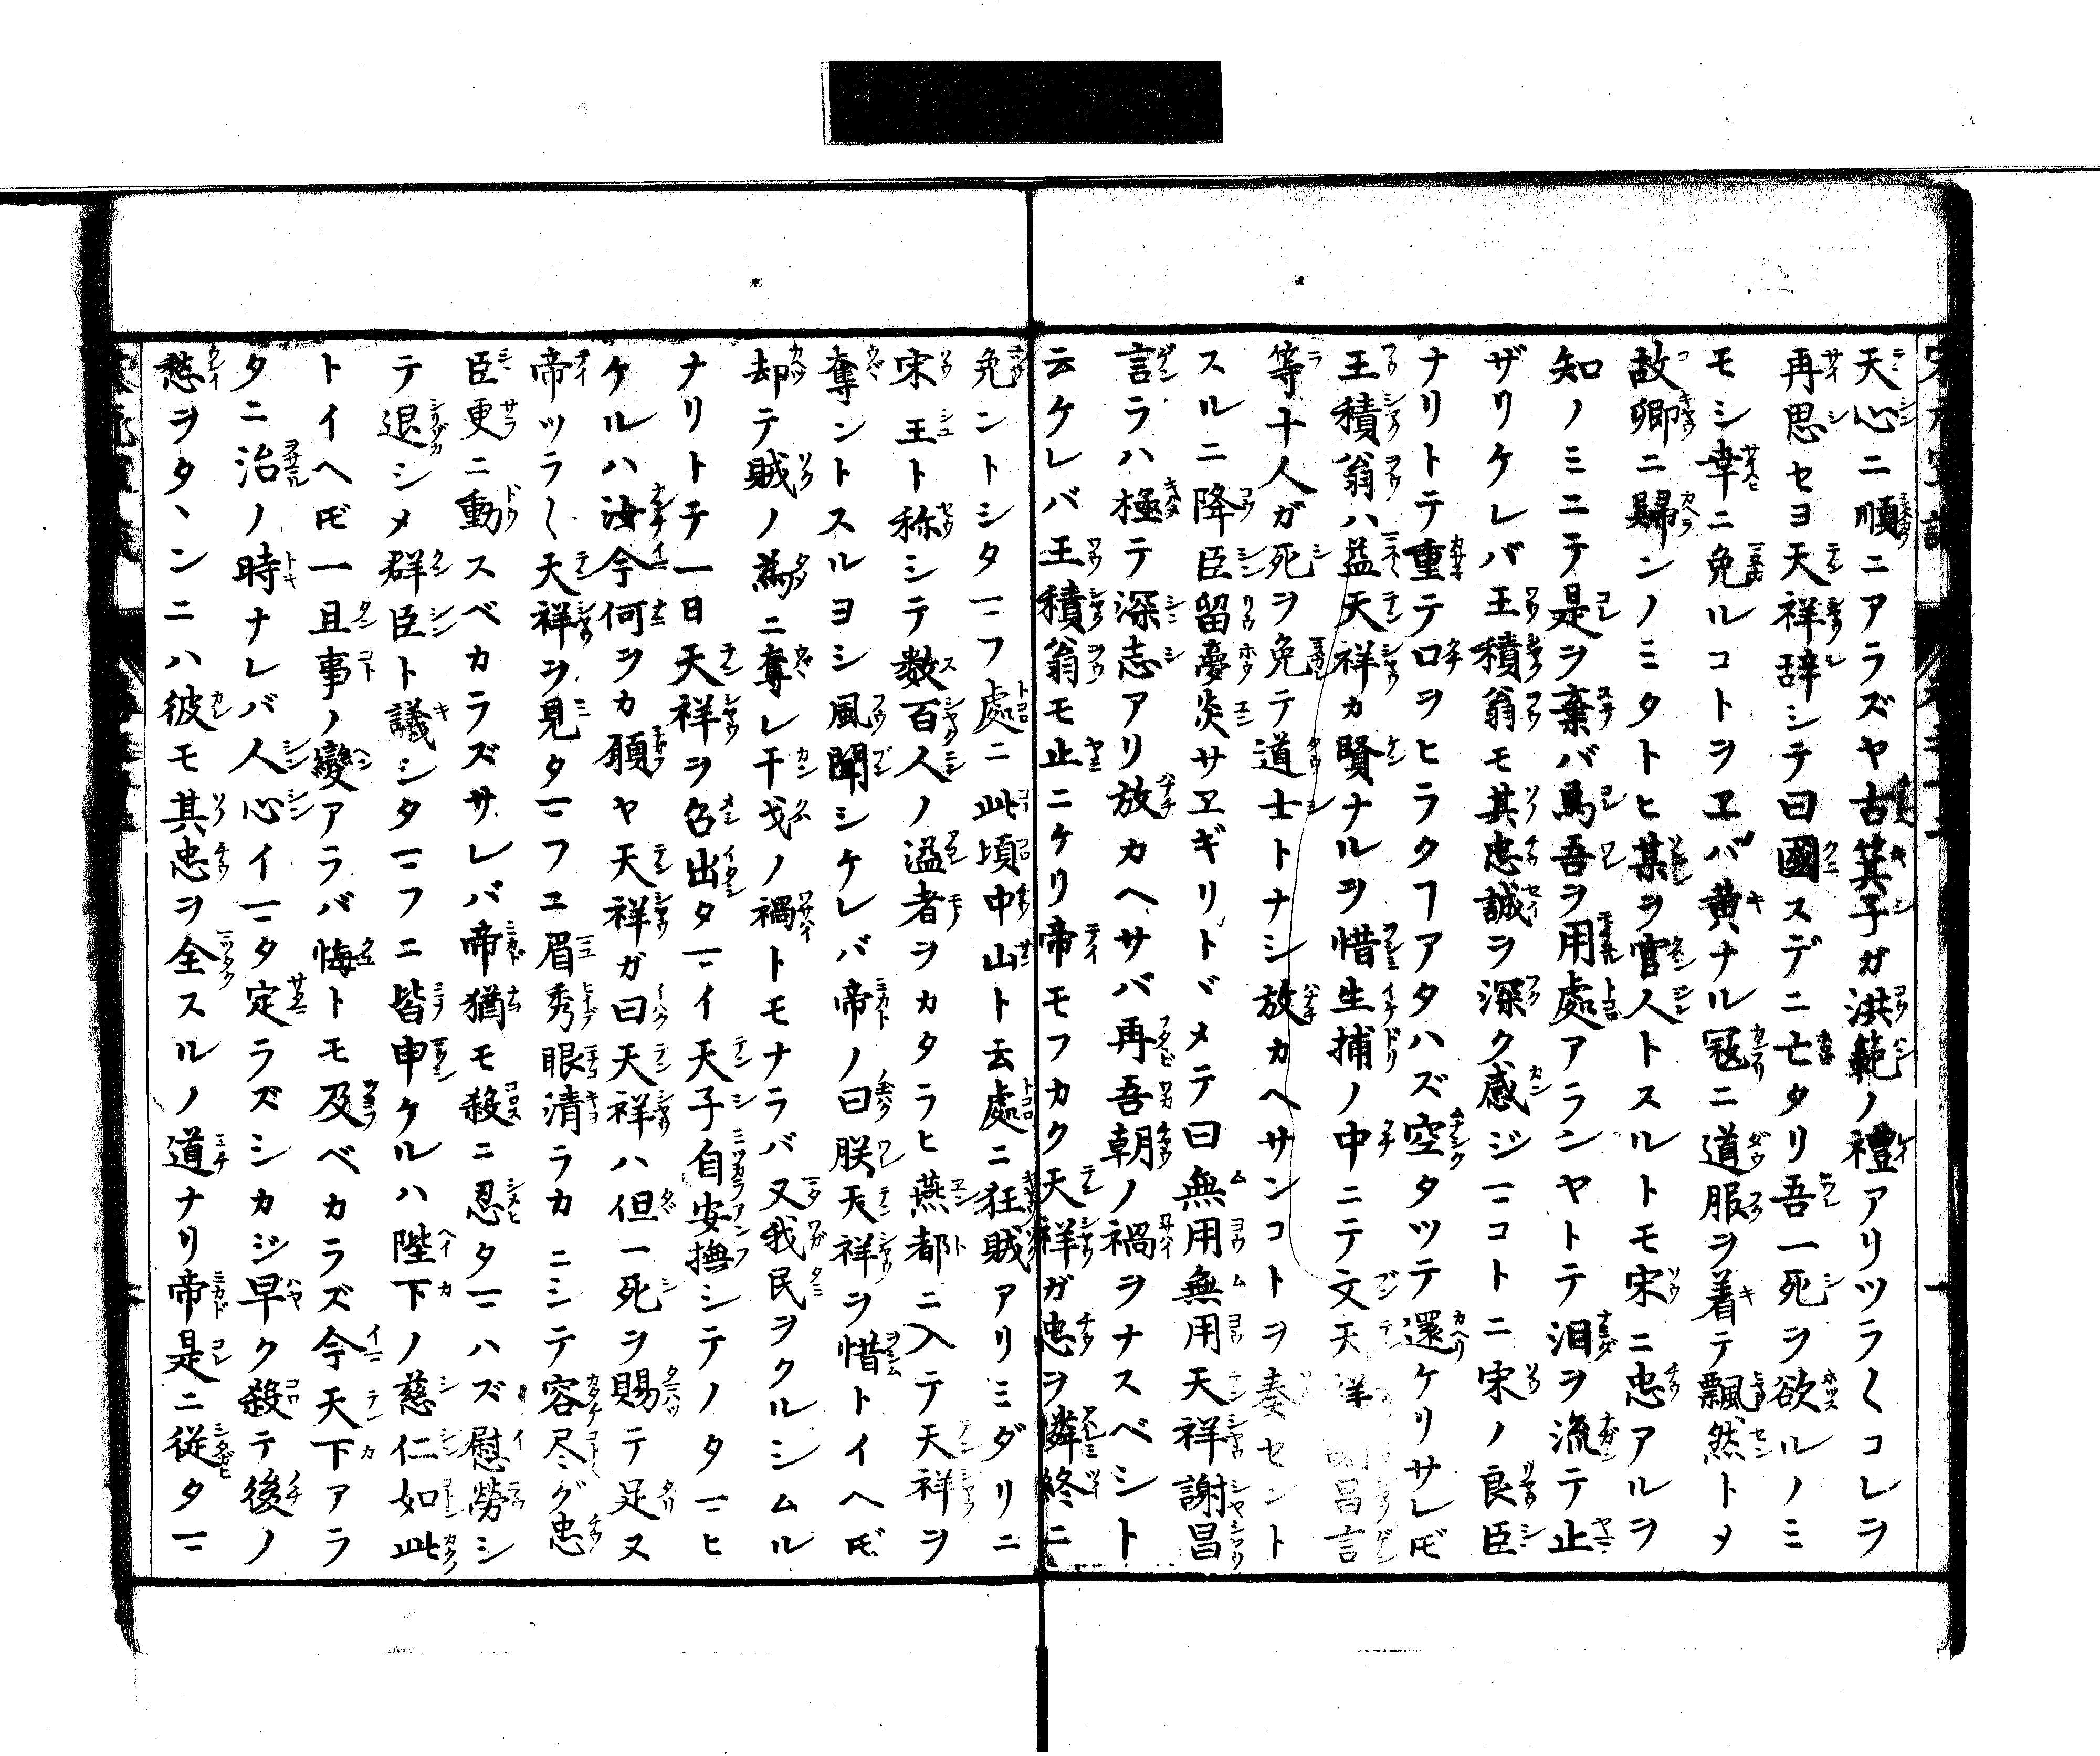 天心ニ順ニアラズヤ古箕子ガ洪範ノ禮アリツラ〱コレヲ
再思セヨ天祥辞シテ曰國スデニ亡タリ吾一死ヲ欲ルノミ
モシ幸ニ免ルコトヲヱバ黄ナル冠ニ道服ヲ着テ飄然トメ
故卿ニ歸ンノミタトヒ某ヲ官人トスルトモ宋ニ忠アルヲ
知ノミニテ是ヲ棄バ焉吾ヲ用處アランヤトテ泪ヲ流テ止
ザリケレバ王積翁モ其忠誠ヲ深ク感ジマコトニ宋ノ良臣
ナリトテ重テ口ヲヒラクヿアタハズ空タツテ還ケリサレ𪜈
王積翁ハ益天祥カ賢ナルヲ惜生捕ノ中ニテ文天祥 昌言
等十人ガ死ヲ免テ道士トナシ放カヘサンコトヲ奏セント
スルニ降臣留夢炎サヱギリトヾメテ曰無用無用天祥謝昌
言ラハ極テ深志アリ放カヘサバ再吾朝ノ禍ヲナスベシト
云ケレバ王積翁モ止ニケリ帝モフカク天祥ガ忠ヲ憐終ニ
免ントシタマフ處ニ此頃中山ト云處ニ狂賊アリミダリニ
宋王ト称シテ数百人ノ溢者ヲカタラヒ燕都ニ入テ天祥ヲ
奪ントスルヨシ風聞シケレバ帝ノ曰朕天祥ヲ惜トイヘ𪜈
却テ賊ノ為ニ奪レ干戈ノ禍トモナラバ又我民ヲクルシムル
ナリトテ一日天祥ヲ召出タマイ天子自安撫シテノタマヒ
ケルハ汝今何ヲカ願ヤ天祥ガ曰天祥ハ但一死ヲ賜テ足ヌ
帝ツラ〱天祥ヲ見タマフニ眉秀眼清ラカニシテ容尽グ忠
臣更ニ動スベカラズサレバ帝猶モ殺ニ忍タマハズ慰勞シ
テ退シメ群臣ト議シタマフニ皆申ケルハ陛下ノ慈仁如此
トイヘ𪜈一旦事ノ變アラバ悔トモ及ベカラズ今天下アラ
タニ治ノ時ナレバ人心イマタ定ラズシカジ早ク殺テ後ノ
愁ヲタヽンニハ彼モ其忠ヲ全スルノ道ナリ帝是ニ従タマ